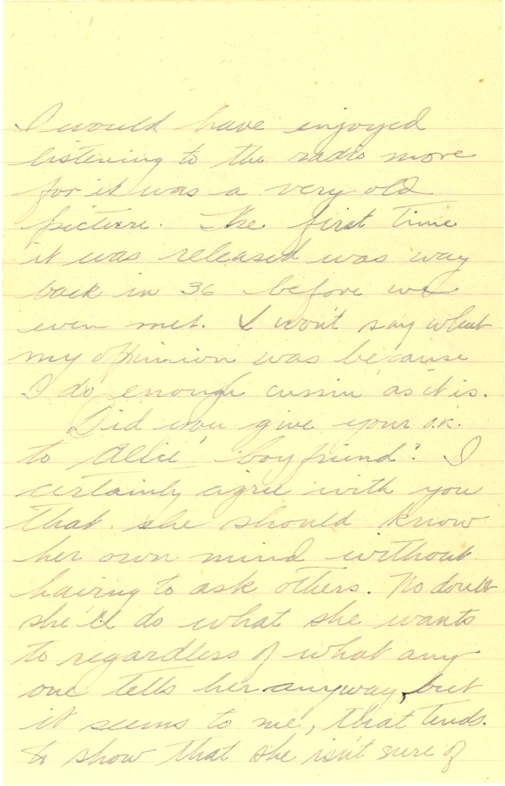 I would have enjoyed
listening to the radio more
for it was a very old
picture. The first time
it was released was way
back in 36 before we
even met. I won't say what
my opinion was because
I do enough cussin' as it is.
Did you give your o.k.
to Alice' "boyfriend". I
certainly agree with you
that she should know
her own mind without
having to ask others. No doubt
she'll do what she wants
to regardless of what any
one tells her anyway, but
it seems to me, that tends
to show that she isn't sure of